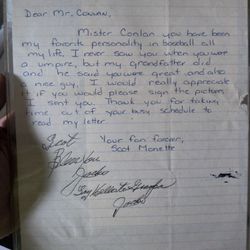 Dear Mr. Conlan,
Mister Conlan you have been
my favorite personality in baseball all
my life. I never saw you when you were
a umpire, but my grandfather did
and he said you were great and also
a nice guy. I would really appreciate
it if you would please sign the picture
I sent you. Thank you for taking
time out of your busy schedule to
read my letter.
Your fan forever,
Scot Monette
Scot
Bless You
Jocko
Say Hello to Grandpa
Jocko